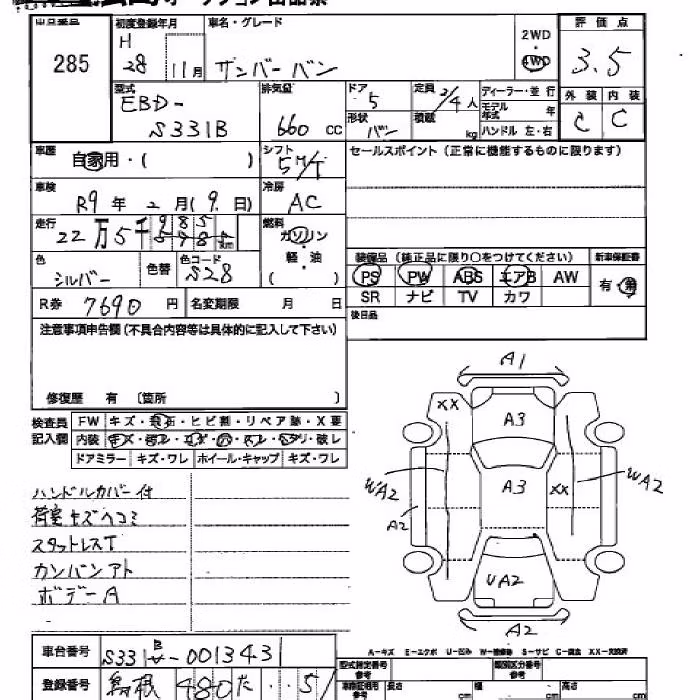 出品番号
285
初度登録年月
H
28 11月
車名・グレード
サンバーバン
2WD
・
4WD
評価点
3.5
外装 内装
C C
型式
EBD-
S331B
排気量
660 cc
ドア
5
定員
2/4人
形状
バン
積載
kg
ディーラー・並行
モデル年式 年
ハンドル 左・右
車歴
自家用・( )
シフト
5M/T
セールスポイント (正常に機能するものに限ります)
車検
R9年 2月(9.日)
冷房
AC
走行
22万5千985
km
燃料
ガソリン
・
軽・油
( )
色
シルバー
色替
色コード
S28
装備品 (純正品に限り○をつけてください)
PS PW ABS エアB AW
SR ナビ TV カワ
新車保証書
有・無
R券 7690円
名変期限 月 日
後日品
注意事項申告欄 (不具合内容等は具体的に記入して下さい)
修復歴 有 〔箇所 〕
検査員
記入欄
FW キズ・飛石・ヒビ割・リペア跡・X要
内装
ドアミラー キズ・ワレ ホイール・キャップ キズ・ワレ
ハンドルカバー付
荷室キズヘコミ
スタットレスT
カンバンアト
ボデーA
A1
XX
A3
A3
XX
WA2
WA2
A2
UA2
A2
A-キズ E-エクボ U-凹み W-補修跡 S-サビ C-腐食 XX-交換済
車台番号
S331B-0013431
登録番号
島根 480 た ・・51
型式指定番号
類別区分番号
長さ cm
幅 cm
高さ cm